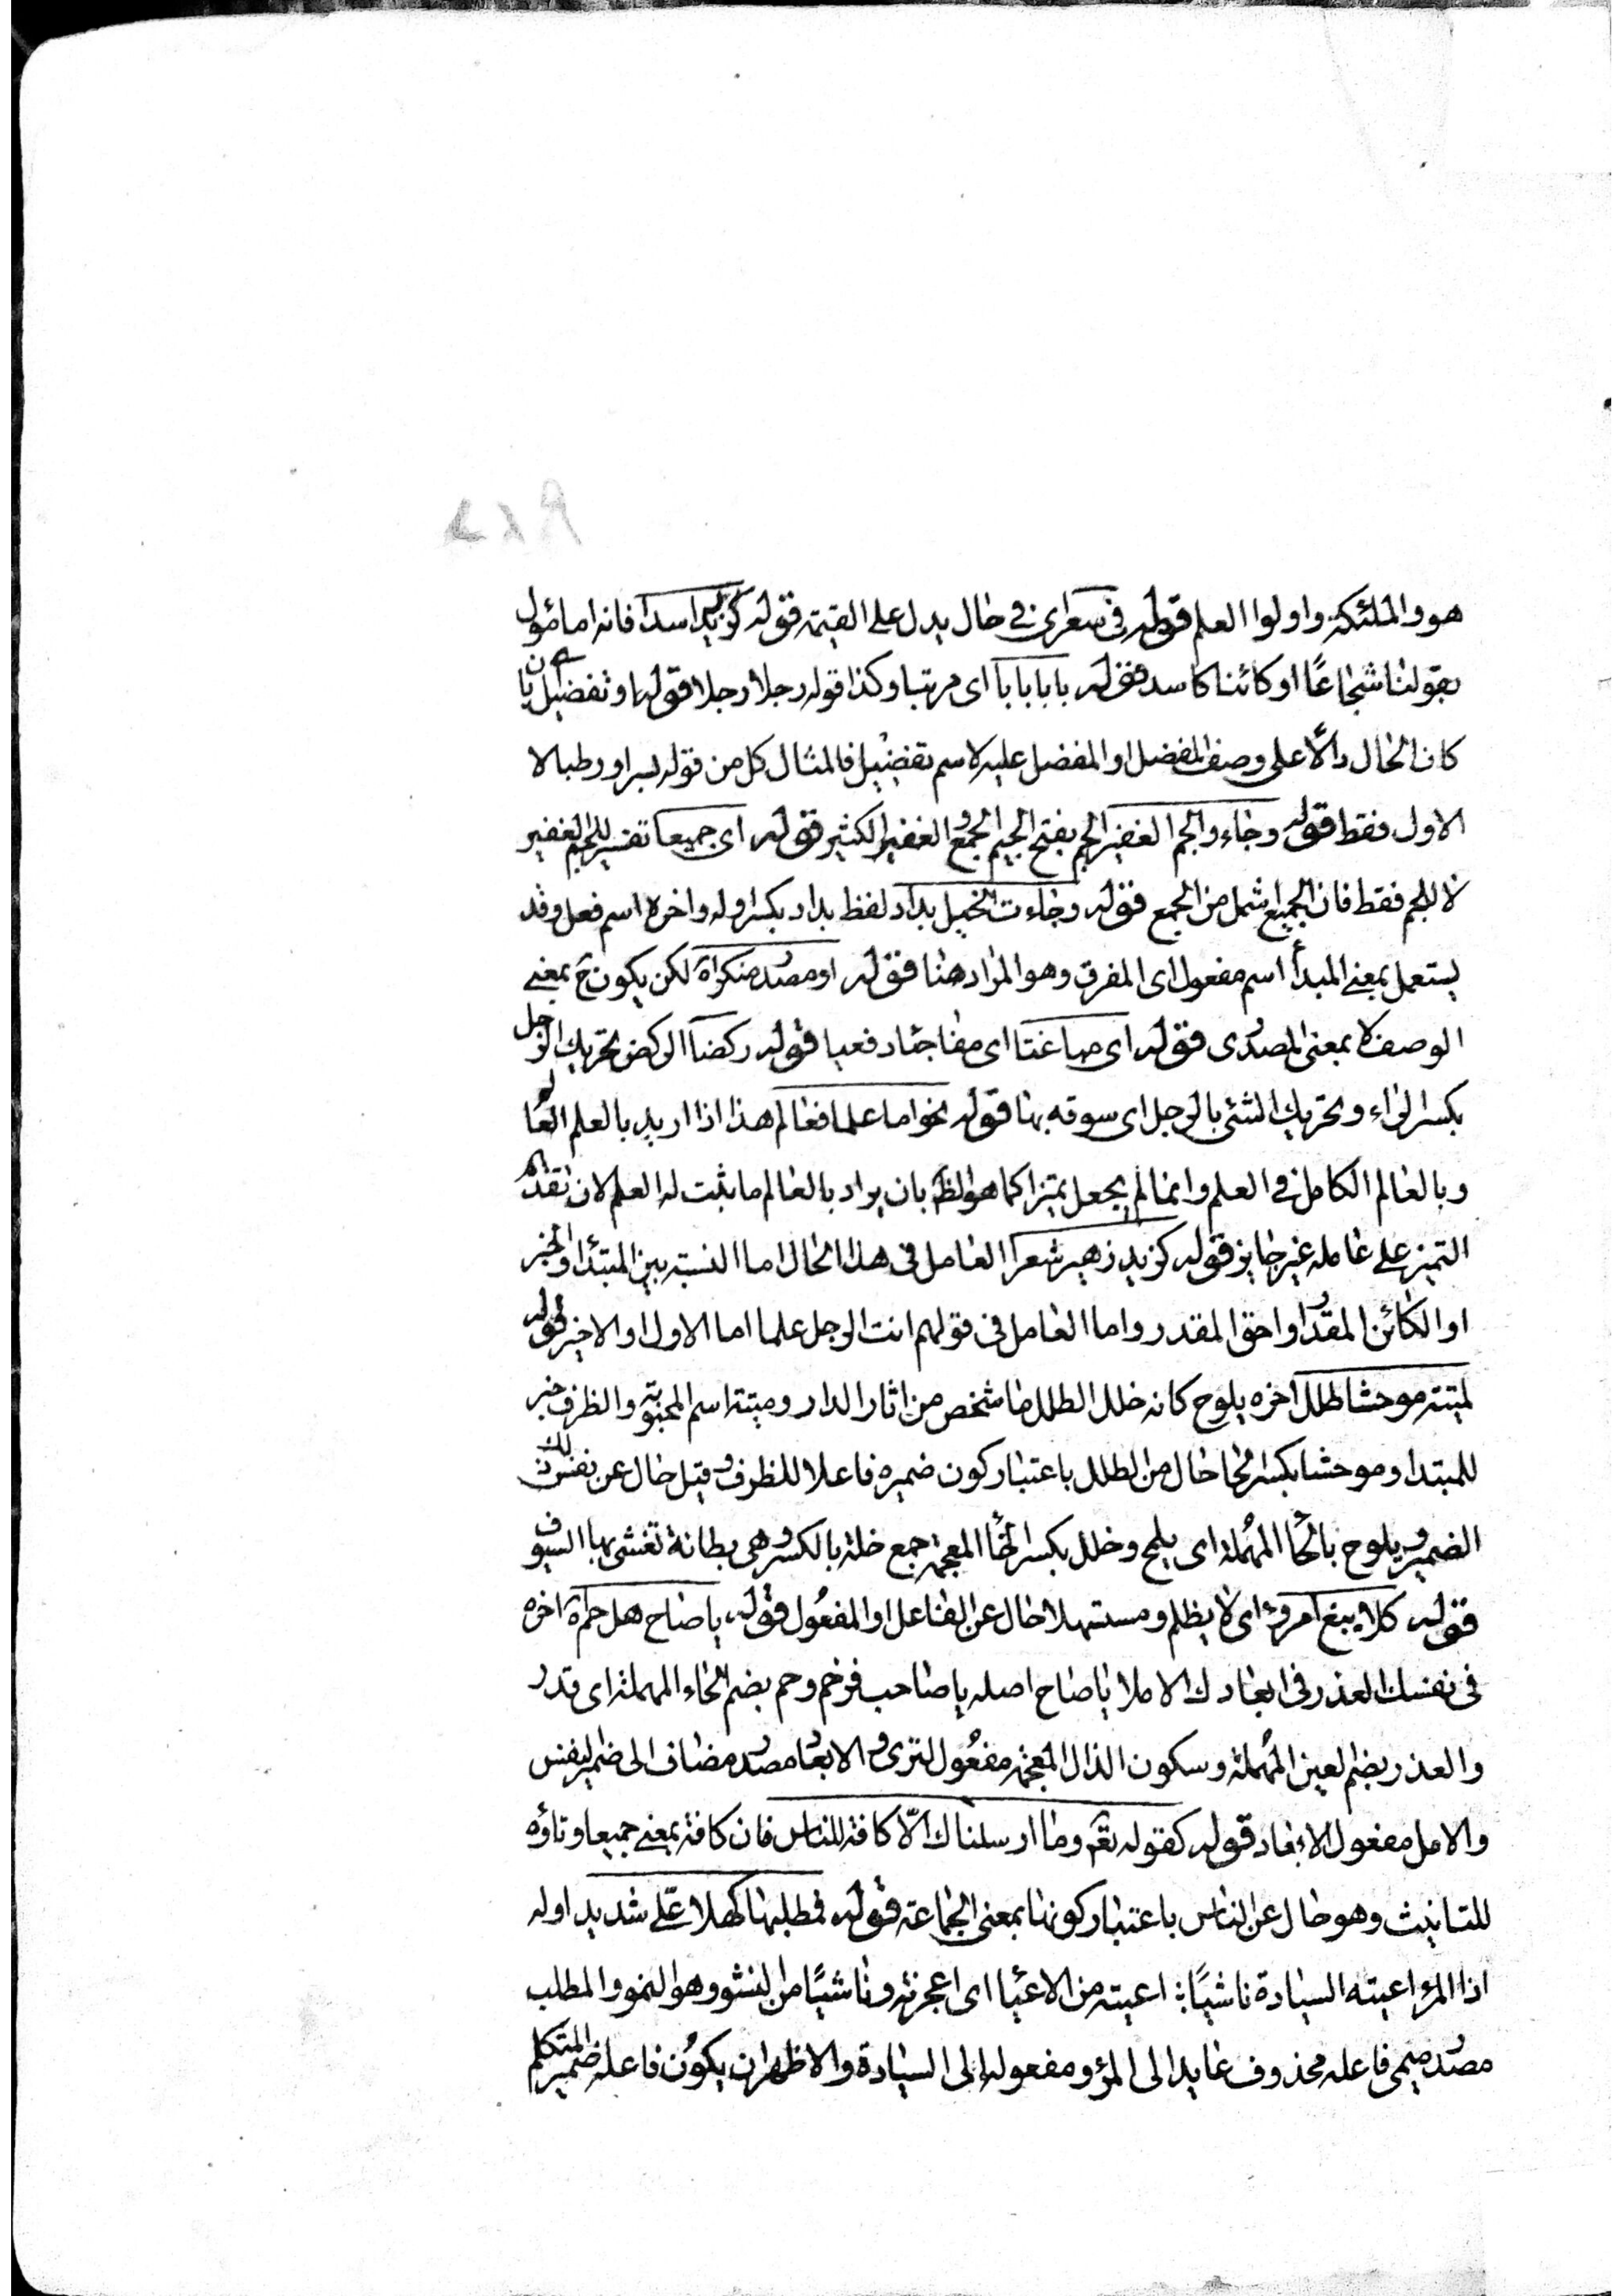 هو والملئكة واولوا العلم قوله في سعر اى في حال يدل على القيمة قوله كزيد اسدا فانه اما مأول
بقولنا شجاعًا او كائنا كاسد قوله بابا بابا اى مرتبا وكذا قوله رجلا رجلا قوله او تفضيل بان
كان الحال دالًا على وصف المفضل او المفضل عليه لاسم تفضيل فالمثال كل من قوله بسرا ورطبا لا
الاول فقط قوله وجاء والجم الغفير الجم بفتح الجيم الجمع والغفير الكثير قوله اى جميعا تفسير للجم الغفير
لا للجم فقط فان الجميع اشمل من الجمع قوله وجاءت الخيل بداد لفظ بداد بكسر اوله واخره اسم فعل وقد
يستعمل بمعنى المبدأ اسم مفعول اى المفرق وهو المراد هنا قوله او مصدر منكرا لكن يكون ح بمعنى
الوصف لا بمعنى المصدرى قوله اى مباغتا اى مفاجئا دفعيا قوله ركضا الركض تحريك الرجل
بكسر الراء وتحريك الشئ بالرجل اى سوقه بها قوله نحو اما علما فعالم هذا اذا اريد بالعلم العا
وبالعالم الكامل في العلم وانما لم يجعل تميزا كما هو الظ بان يراد بالعالم ما يثبت له العلم لان تقدم
التميز على عامله غير جايز قوله كزيد زهير شعرا العامل في هذا الحال اما النسبة بين المبتدأ والخبر
او الكائن المقدر او احق المقدر واما العامل في قولهم انت الرجل علما اما الاول او الاخير قوله
لميتة موحشا طلل اخره يلوح كانه خلل الطلل ما شخص من اثار الدار وميتة اسم المحبوبة والظرف خبر
للمبتدا وموحشا بكسر الحا حال من الطلل باعتبار كون ضميره فاعلا للظرف وقيل حال عن نفس ذلك
الضمير ويلوح بالحا المهملة اى يلمح وخلل بكسر الخا المعجمة جمع خلة بالكسر وهى بطانة تغشى بها السيوف
قوله كلا يبغ امرؤ اى لا يظلم ومستسهلا حال عن الفاعل او المفعول قوله يا صاح هل حم اخره
في نفسك العذر في ابعادك الاملا يا صاح اصله يا صاحب فرخم وحم بضم الحاء المهملة اى قدر
والعذر بضم العين المهملة وسكون الذال المعجمة مفعول لترى والابعاد مصدر مضاف الى ضمير لنفس
والامل مفعول الابعاد قوله كقوله تعم وما ارسلناك الّا كافة للناس فان كافة بمعنى جميعا وتاؤه
للتانيث وهو حال عن الناس باعتبار كونها بمعنى الجماعة قوله فمطلبها كهلا علّى شديد اوله
اذا المرؤ اعيته السيادة ناشيًا اعيته من الاعيا اى اعجزته وناشيًا من النشو وهو النمو والمطلب
مصدر ميمى فاعله محذوف عايد الى المرؤ ومفعوله الى السيادة والاظهر ان يكون فاعله ضمير المتكلم